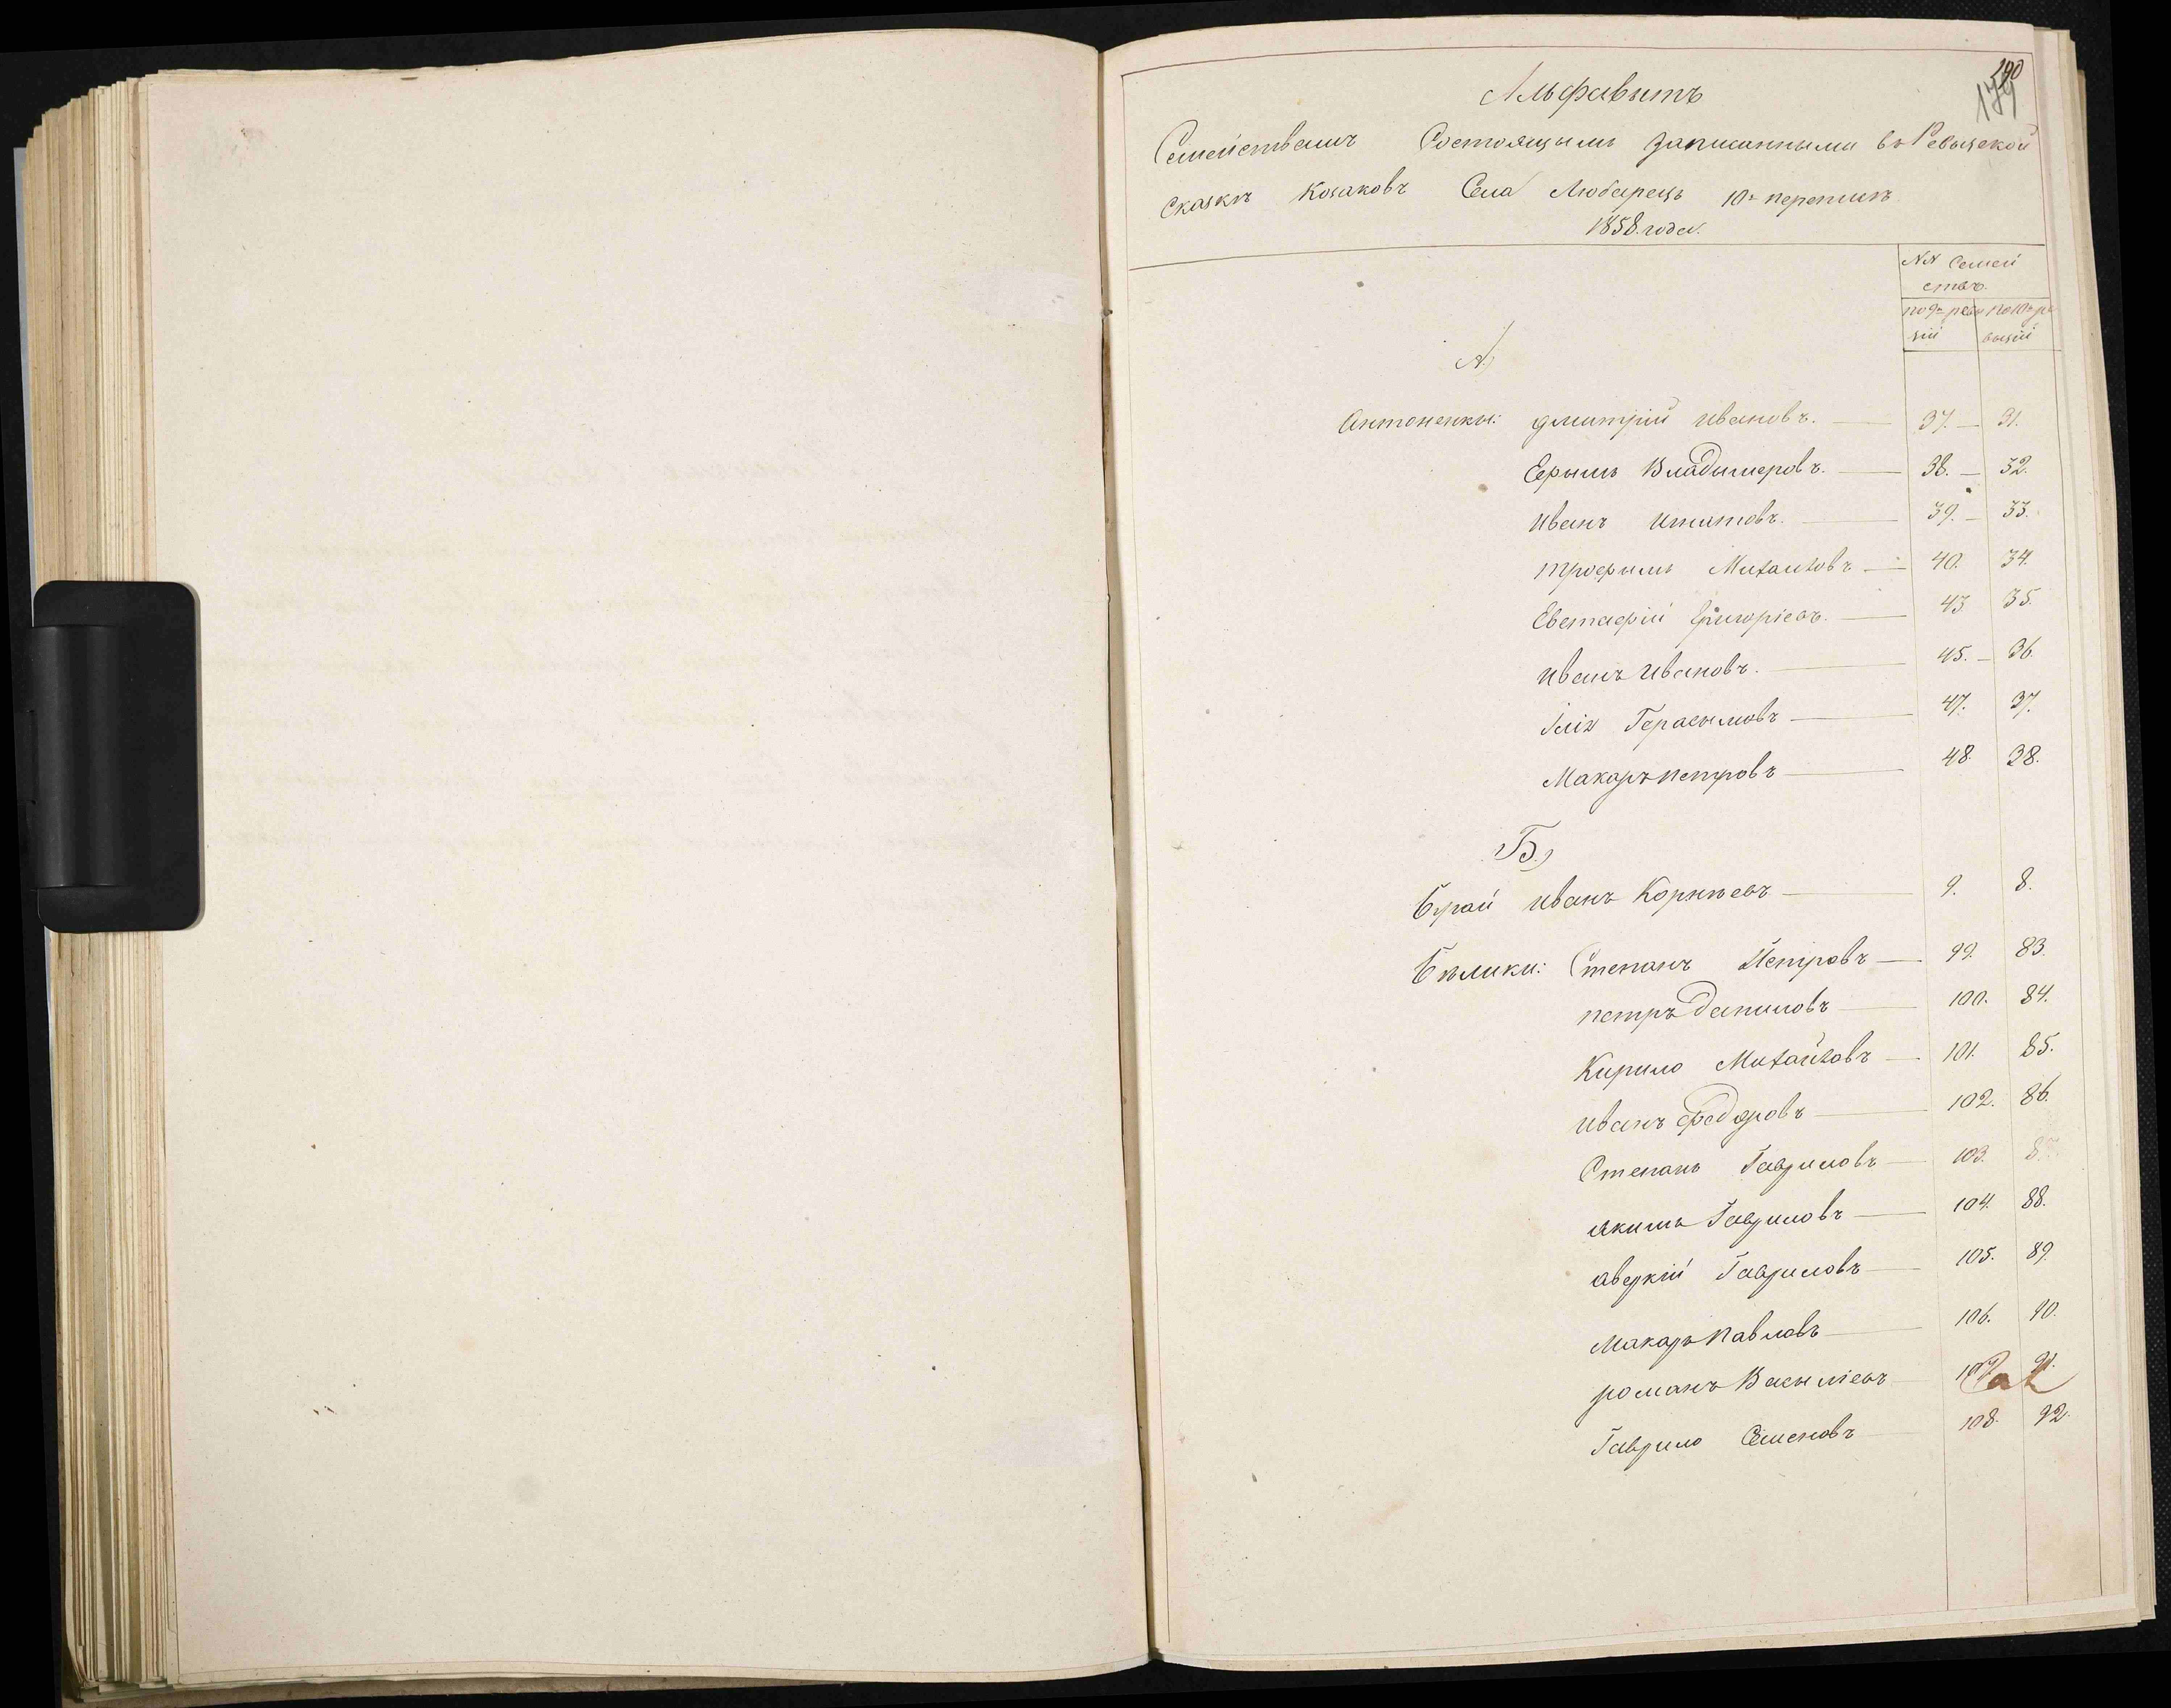 190
179
Альфавитъ
Семействамъ Состоящымъ записанными въ Ревызской
Сказкѣ Козаковъ Села Любарецъ 10й перепысѣ
1858. года.
NN Семей
ствъ.
по 9й реви по 10й ре
зіи высіи
А.)
Антоненкы: дмитрій ивановъ. 37. 31.
Ефымъ Владымеровъ. 38. 32.
иванъ 39. 33.
трофымъ Михайловъ 40. 34.
Евстафій Григоріевъ. 43. 35.
иванъ ивановъ. 45. 36.
Іліа Герасымовъ 47. 37.
Макаръ петровъ 48. 38.
Б.)
Брай иванъ Корнѣевъ 9. 8.
Бѣлики: Степанъ Петровъ 99. 83.
петръ Даниловъ 100. 84.
Кирило Михайловъ 101. 85.
иванъ Федоровъ 102. 86.
Степанъ Гавриловъ 103.
якимъ Гавриловъ 104. 88.
аверкій Гавриловъ 105. 89.
Макаръ павловъ 106. 90.
романъ Васыліевъ 107. 91.
Гаврило Семеновъ 108. 92.